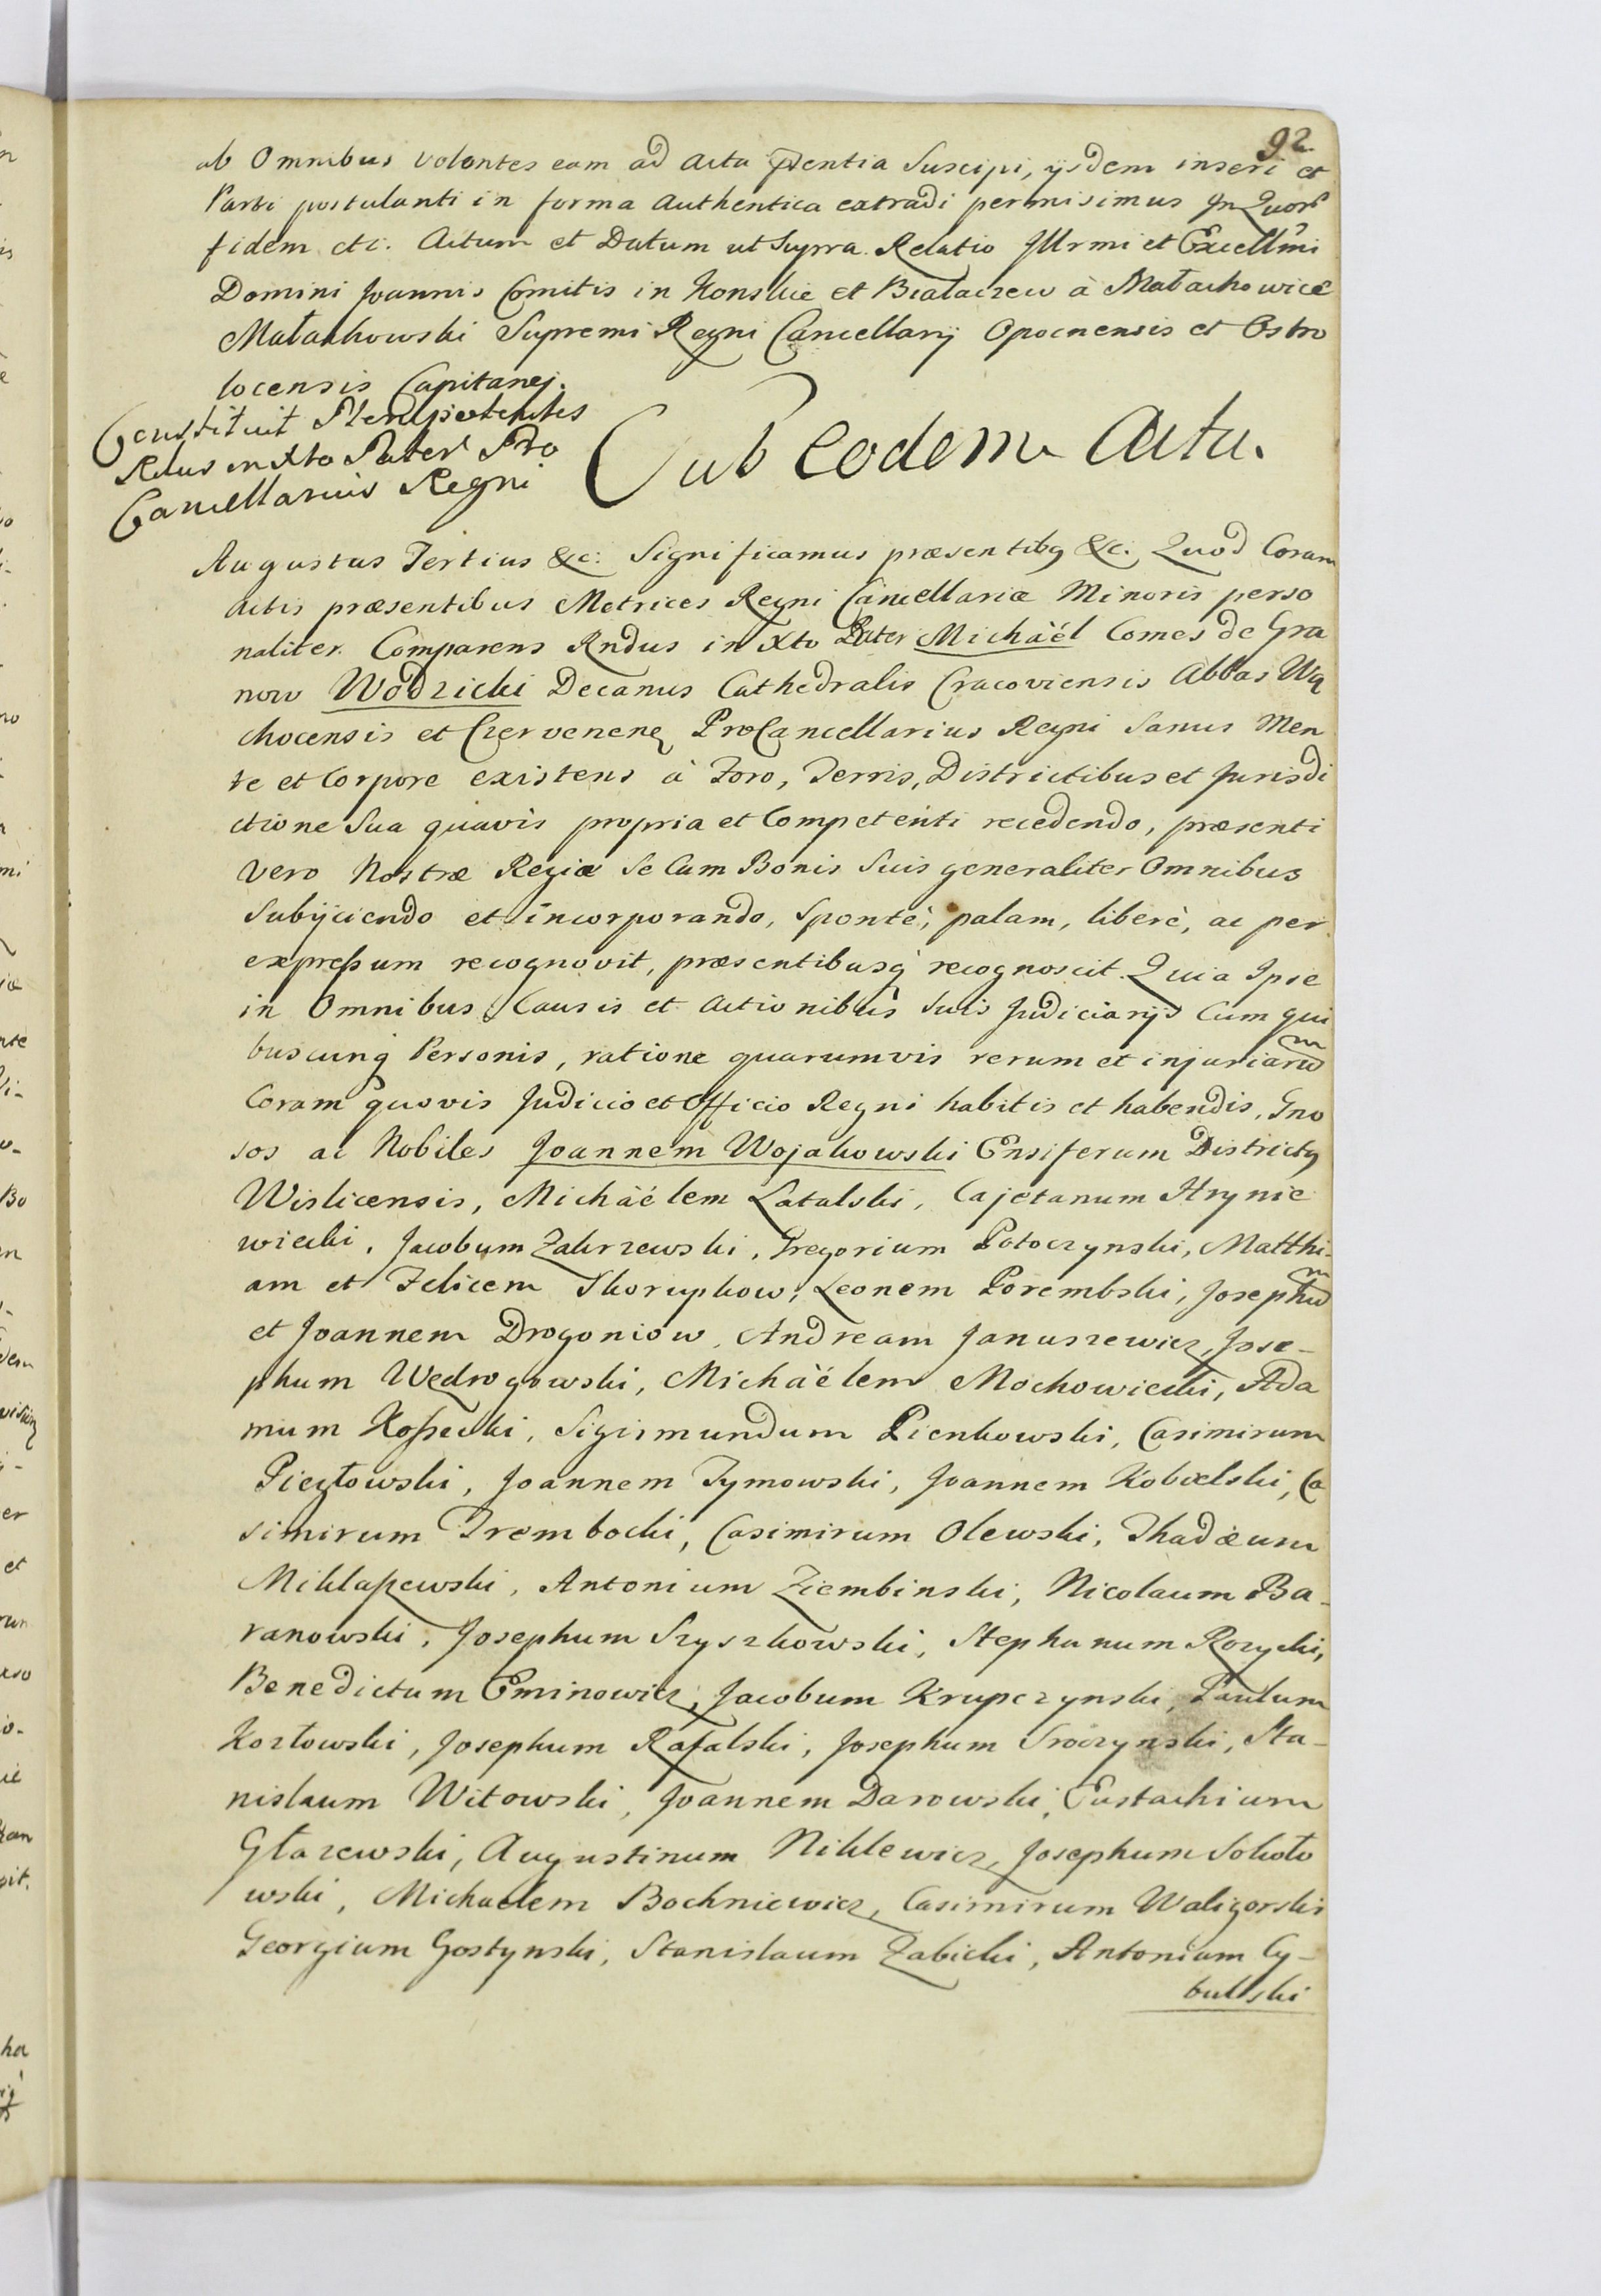 92.
ab Omnibus volentes eam ad Acta pñtia Suscipi, ijsdem inseri et
Parti postulanti in forma Authentica extradi permisimus In Quor̃
fidem etc. Actum et Datum ut Supra. Relatio Jllrmi et Excellmi
Domini Joannis Comitis in Konskie et Białaczew à Małachowice
Małachowski Supremi Regni Cancellarij Opocnensis et Ostro
locensis Capitanej.
Constituit Plenipotentes
Rndus in Xto Pater Pro
Cancellarius Regni
Sub Eodem Actu.
Augustus Tertius &c: Significamus præsentibg &c. Quod Coram
Actis præsentibus Metrices Regni Cancellariæ Minoris perso
naliter Comparens Rndus in Xto Pater Michäél Comes de Gra
now Wodzicki Decanus Cathedralis Cracoviensis Abbas Wą
chocensis et Czervenenę ProCancellarius Regni Sanus Men
te et Corpore existens à Foro, Terris, Districtibus et Jurisdi
ctione Sua quavis propria et Competenti recedendo, præsenti
vero Nostræ Regiæ Se Cum Bonis Suis generaliter Omnibus
Subijciendo et incorporando, Spontè, palam, liberè, ac per
expressum recognovit, præsentibusq́ recognoscit. Quia Ipse
in Omnibus Causis et Actionibus Suis Judiciarijs Cum qui
buscunq́ Personis, ratione quarumvis rerum et injuriarum
Coram quovis Judicio et Officio Regni habitis et habendis, Gno
sos ac Nobiles Joannem Wojakowski Ensiferum Districtg
Wislicensis, Michäélem Latalski, Cajetanum Hrynie
wiecki, Jacobum Zakrzewski, Gregorium Potoczynski, Matthi-
am et Felicem Skorupkow, Leonem Porembski, Josephum
et Joannem Drogoniow, Andream Januszewicz, Jose-
phum Wedrogowski, Michäélem Mochowiecki, Ada
mum Kossecki, Sigismundum Pienkowski, Casimirum
Pięgłowski, Joannem Tymowski, Joannem Kobielski, Ca
simirum Trembecki, Casimirum Olewski, Thadæum
Miklaszewski, Antonium Ziembinski, Nicolaum Ba-
ranowski, Josephum Szyszkowski, Stephanum Rozycki,
Benedictum Eminowicz, Jacobum Krupczynski, Paulum
Kozłowski, Josephum Rafalski, Josephum Sroczynski, Sta-
nislaum Witowski, Joannem Darowski, Eustachium
Głazewski, Augustinum Niklewicz, Josephum Sokoło
wski, Michaelem Bochniewicz, Casimirum Waligorski
Georgium Gostynski, Stanislaum Zabicki, Antonium Cy-
bulski